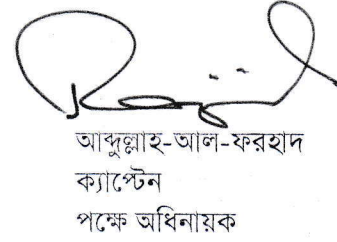 আব্দুল্লাহ-আল-ফরহাদ
ক্যাপ্টেন
পক্ষে অধিনায়ক